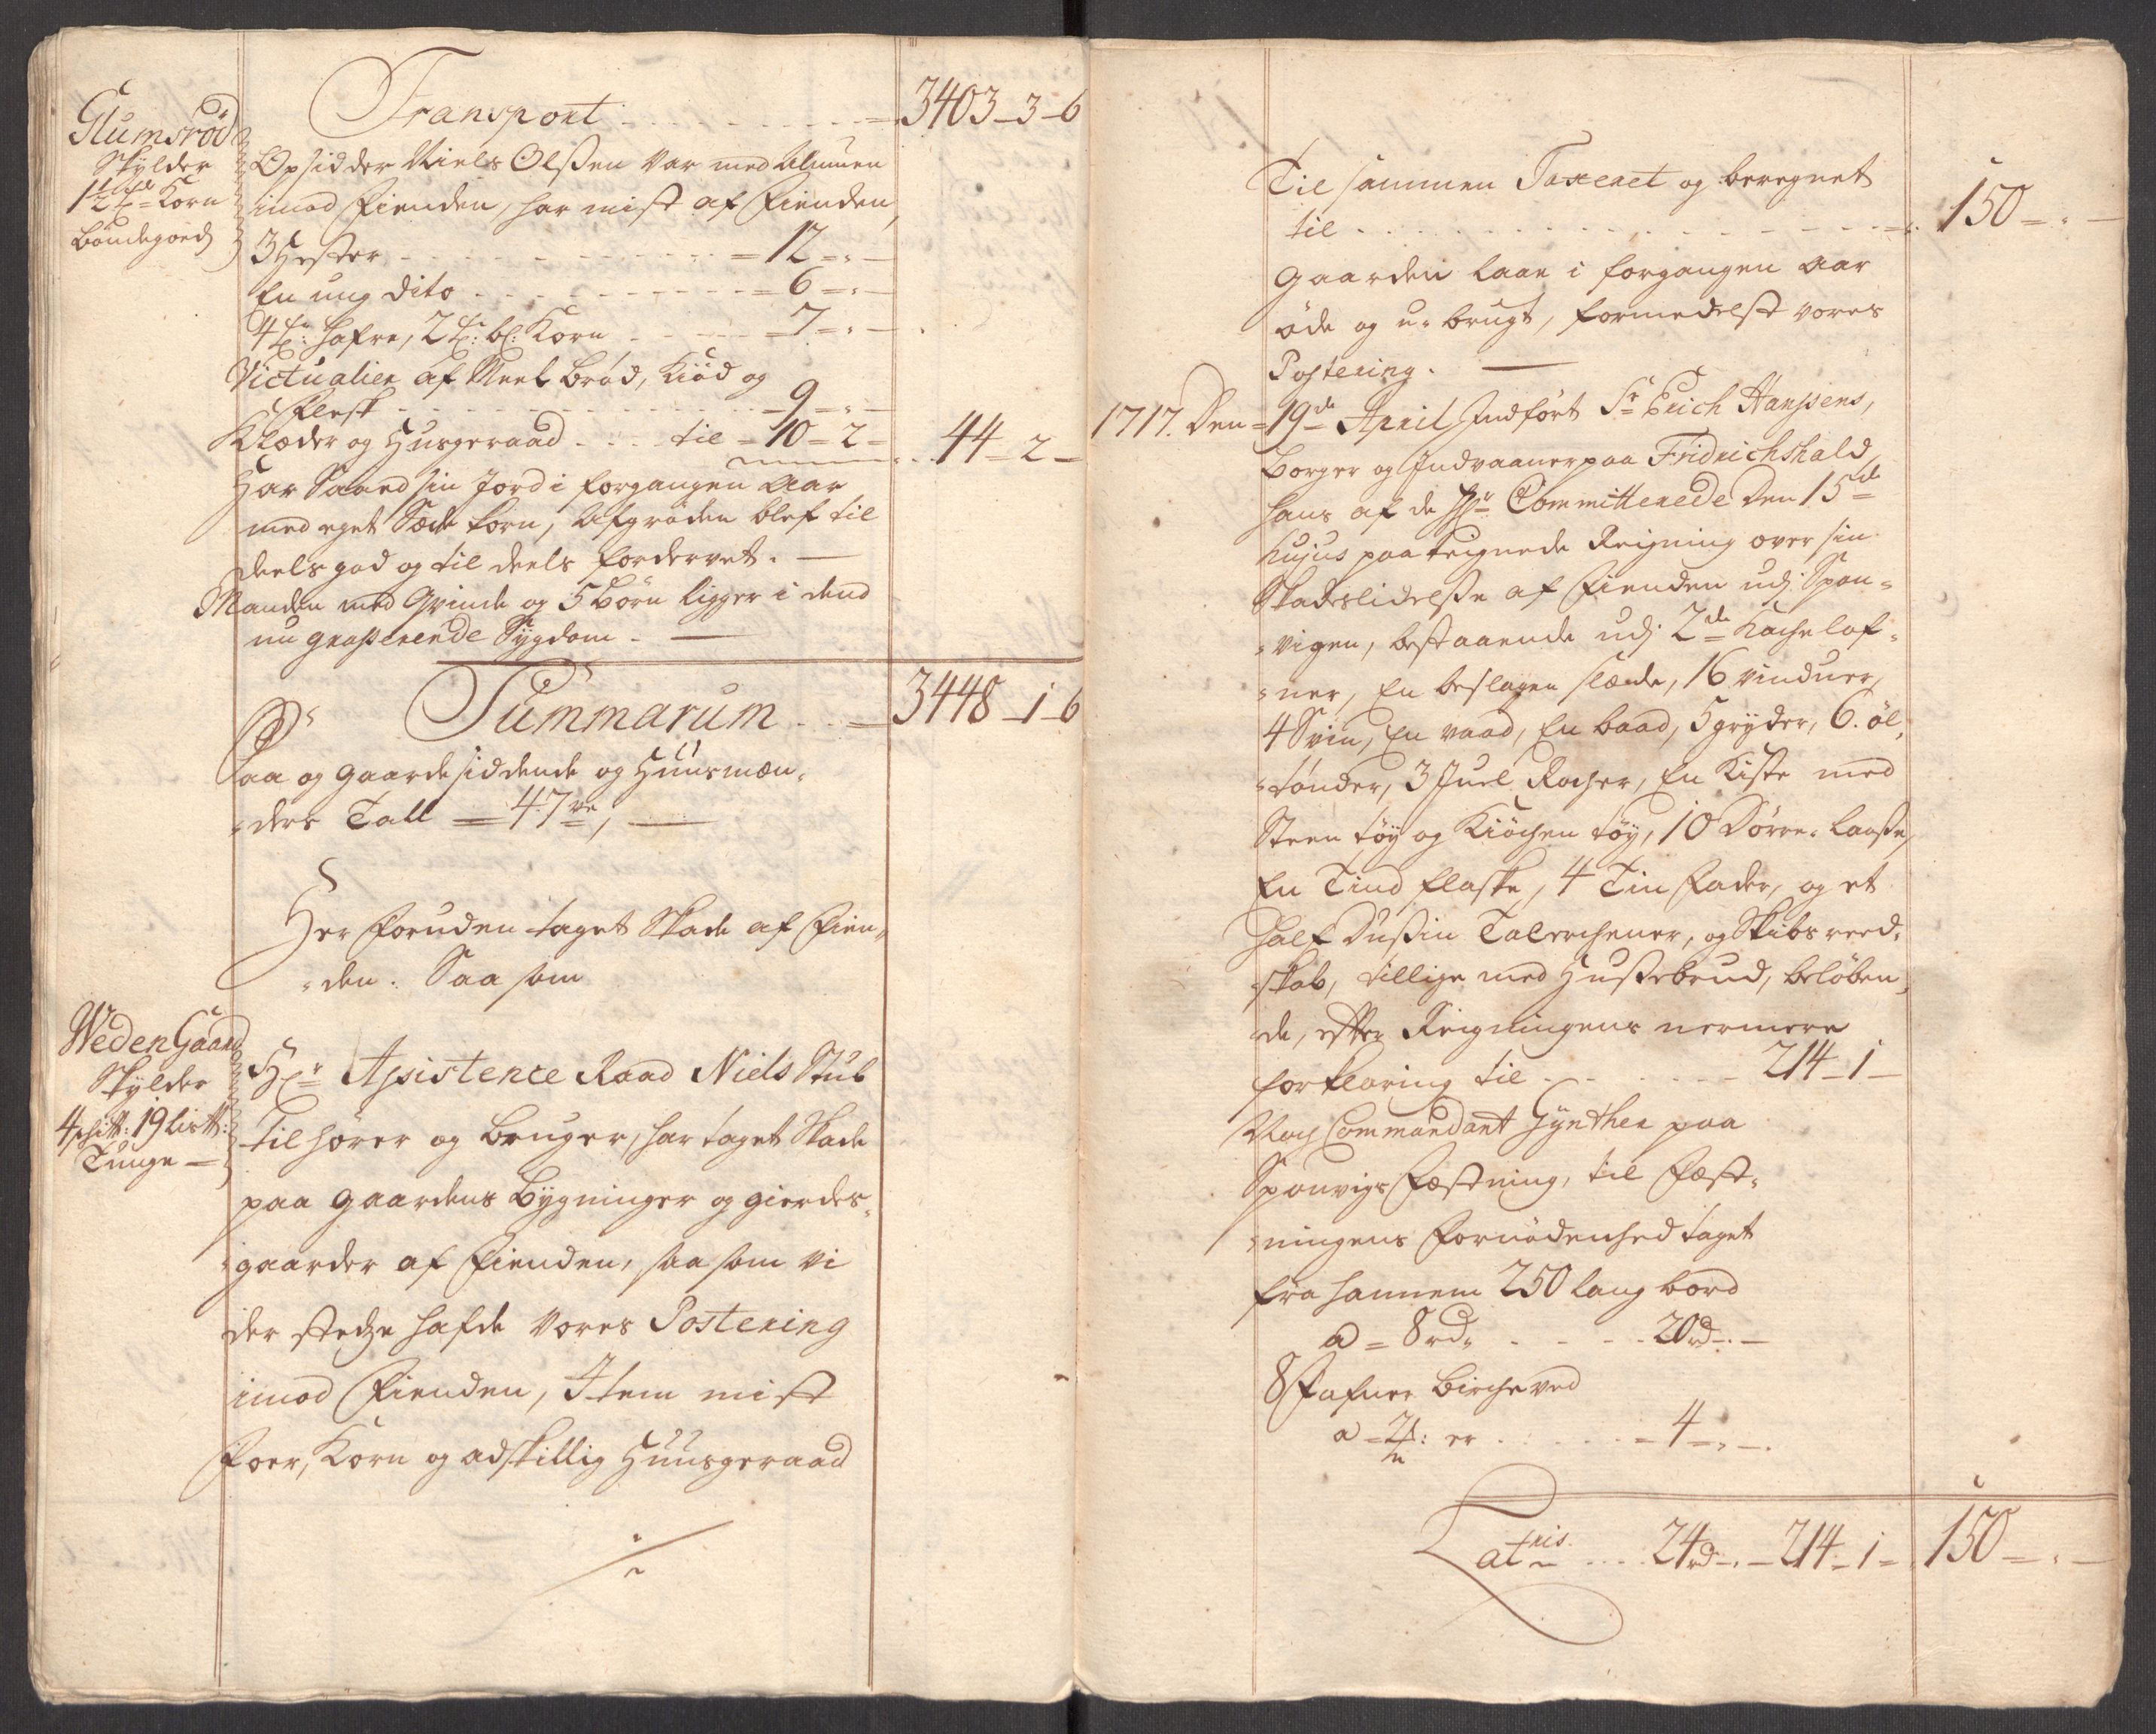 Transport - - - - - - - 3403-3-6
Glumsrød
Skylder
1½ td Korn
bøndegoeds
Opsidder Niels Olssen var med Almuen
imod Fienden, har mist af Fienden,
3 Hester - - - - - - = 12 = " -
En ung dito - - - - - = 6 = " -
4 tr: Hafre, 2 tr: bl: Korn - - - 7 = " -
Victualier af Meel Brød, Kiød og
Flesk - - - - - - - 9 = " -
Klæder og Husgeraad - - - til = 10 = 2 - 44 - 2 -
Har Saaed sin Jord i forgangen Aar
med eget Sæde Korn, Afgrøden blef til
deels god og til deels fordervet. -
Manden med Qvinde og 5 børn ligger i dend
nu grasserende Sygdom. -
Summarum - - = 3448-1-6
Paa og gaardesiddende og Huusmæn-
-ders Tall = 47ve, -
Her foruden taget Skade af Fien-
-den. Saa som
Weden Gaard
Skylder
4 schitt: 19 Listt:
Tunge -
Hr Assistence Raad Niels Stub
tilhører og bruger, har taget Skade
paa gaardens bygninger og gierdes-
-gaarder af Fienden, saa som vi
der stedze hafde vores Postering
imod Fienden, Item mist
Foer, Korn og adskillig Huusgeraad
./.
Til sammen Taxeret og beregnet
til - - - - - - - - - 150 = " -
Gaarden laae i forgangen Aar
øde og u-brugt, formedelst vores
Postering. -
1717. Den = 19de April Indført Sr Erich Hanssens,
borger og Indvaaner paa Fridrichshald,
hans af de Hrr Committerede Den 15de
hujus paategnede Reigning over sin
Skadeslidelsse af Fienden udj Spon-
-vigen, bestaaende udj 2de Kachelof-
-ner, En beslagen slæde, 16 vinduer,
4 Svin, En vaad, En baad, 5 gryder, 6. øl-
-tønder, 3 Juel Racher, En Kiste med
Steen tøy og Kiøchen tøy, 10 Dørre-laasse,
En Tind flaske, 4 Tin Fader, og et
half Dussin Talerchener, og Skibs reed-
-skab, tillige med Hussebrud, beløben-
-de, efter Reigningens nermere
forklaring til - - - - - 214-1-
Noch Commandant Gynther paa
Sponvigs Fæstning, til Fæst-
-ningens fornødenhed taget
fra hannem 250 lang bord
a = 8 rd. - - - 20 rd - " -
8 Fafner Birche ved
a = 2 : er - - - - = 4 = " -.
Latris - - - 24 rd - " - 214-1 = 150 = " -